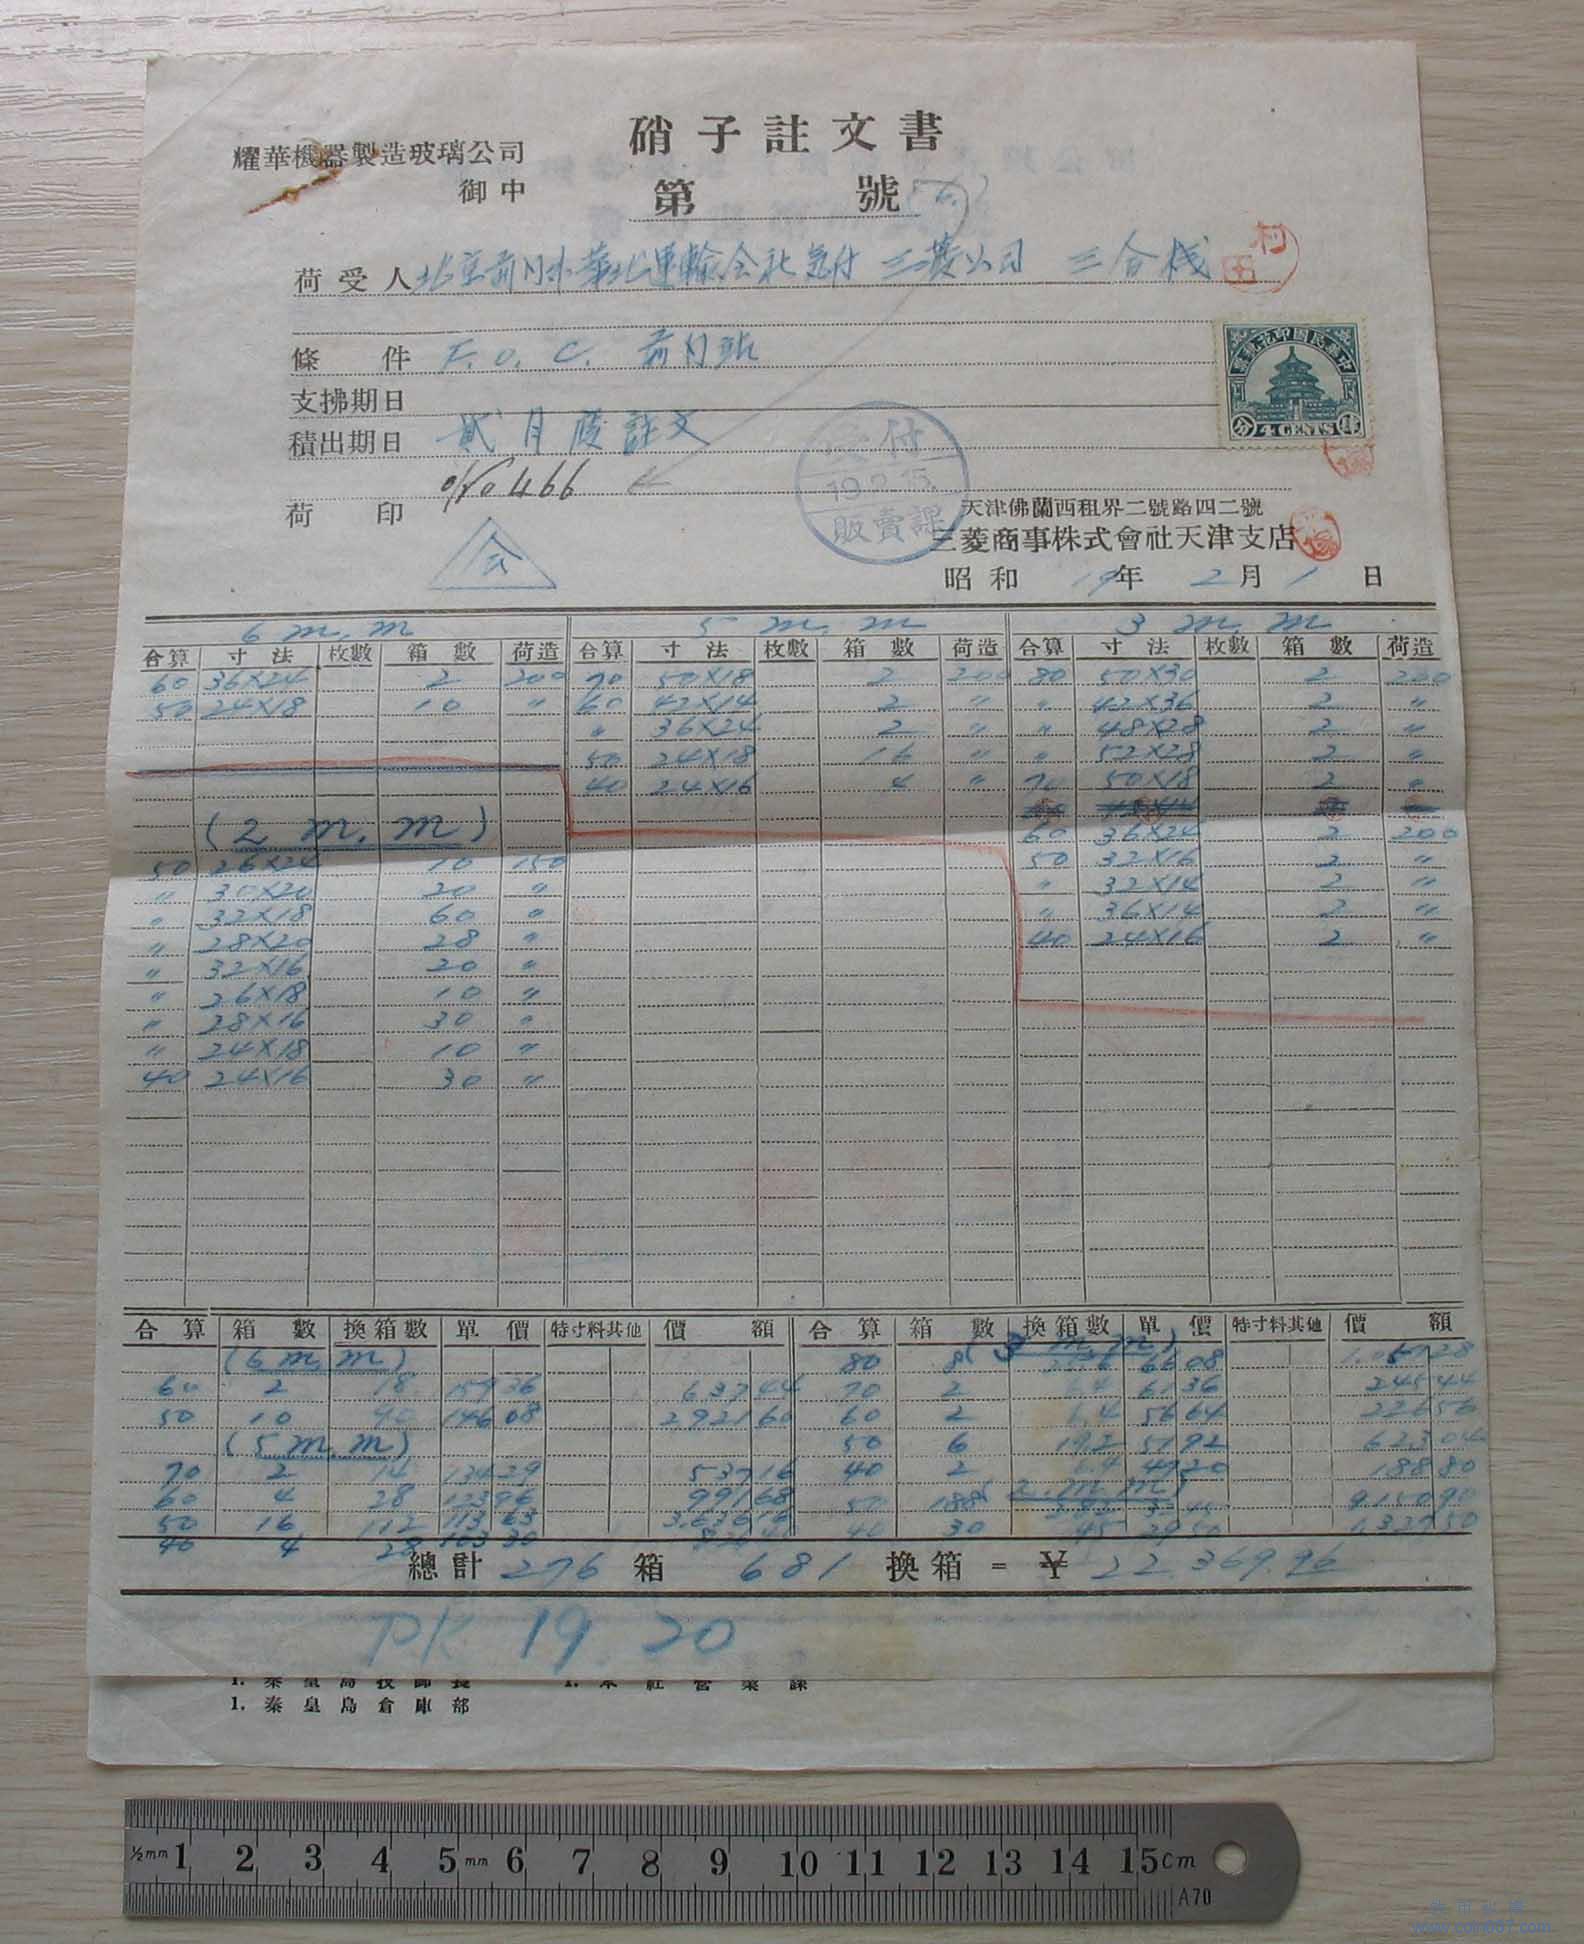 硝子註文書
耀華機器製造玻璃公司
御中
第 號
荷受人 北京前門外華北運輸会社気付 三菱公司 三合棧
村田
條件 F.O.C. 前門站
支拂期日
積出期日 貳月度註文
No 466
荷印
会
中華民國印花稅票
4 CENTS
19.2.15
販賣課
天津佛蘭西租界二號路四二號
三菱商事株式會社天津支店
昭和 19年 2月 1日
6 m.m 5 m.m 3 m.m
合算 寸法 枚數 箱數 荷造 合算 寸法 枚數 箱數 荷造 合算 寸法 枚數 箱數 荷造
60 36×24 2 200 70 50×18 2 200 80 50×30 2 200
50 24×18 10 〃 60 42×14 2 〃 〃 42×36 2 〃
〃 36×24 2 〃 〃 48×28 2 〃
50 24×18 16 〃 〃 52×28 2 〃
40 24×16 4 〃 70 50×18 2 〃
(2 m.m)
60 36×24 2 200
50 26×24 10 150 50 32×16 2 〃
〃 30×20 20 〃 〃 32×14 2 〃
〃 32×18 60 〃 〃 36×14 2 〃
〃 28×20 28 〃 40 24×16 2 〃
〃 32×16 20 〃
〃 26×18 10 〃
〃 28×16 30 〃
〃 24×18 10 〃
40 24×16 30 〃
合算 箱數 換箱數 單價 特寸料其他 價額 合算 箱數 換箱數 單價 特寸料其他 價額
(6 m.m) (3 m.m)
80 8 66 08
60 2 18 159 36 637 44 70 2 6.4 61 36 245 44
50 10 90 146 08 2921 60 60 2 6.4 56 64 226 56
(5 m.m) 50 6 19.2 51 92 623 04
70 2 14 134 29 537 16 40 2 6.4 47 20 188 80
(2 m.m)
60 4 28 123 96 991 68 50 188 9150 90
50 16 112 113 63 3636 16 40 30 45 29 50 1327 50
40 4 28 103 30
總計 276 箱 681 換箱 = ¥ 22,369.96
PK 19 20
1. 秦皇島技師長 1. 本社營業課
1. 秦皇島倉庫部
½mm 1 2 3 4 5 mm 6 7 8 9 10 11 12 13 14 15 cm
A70
www.coin007.com